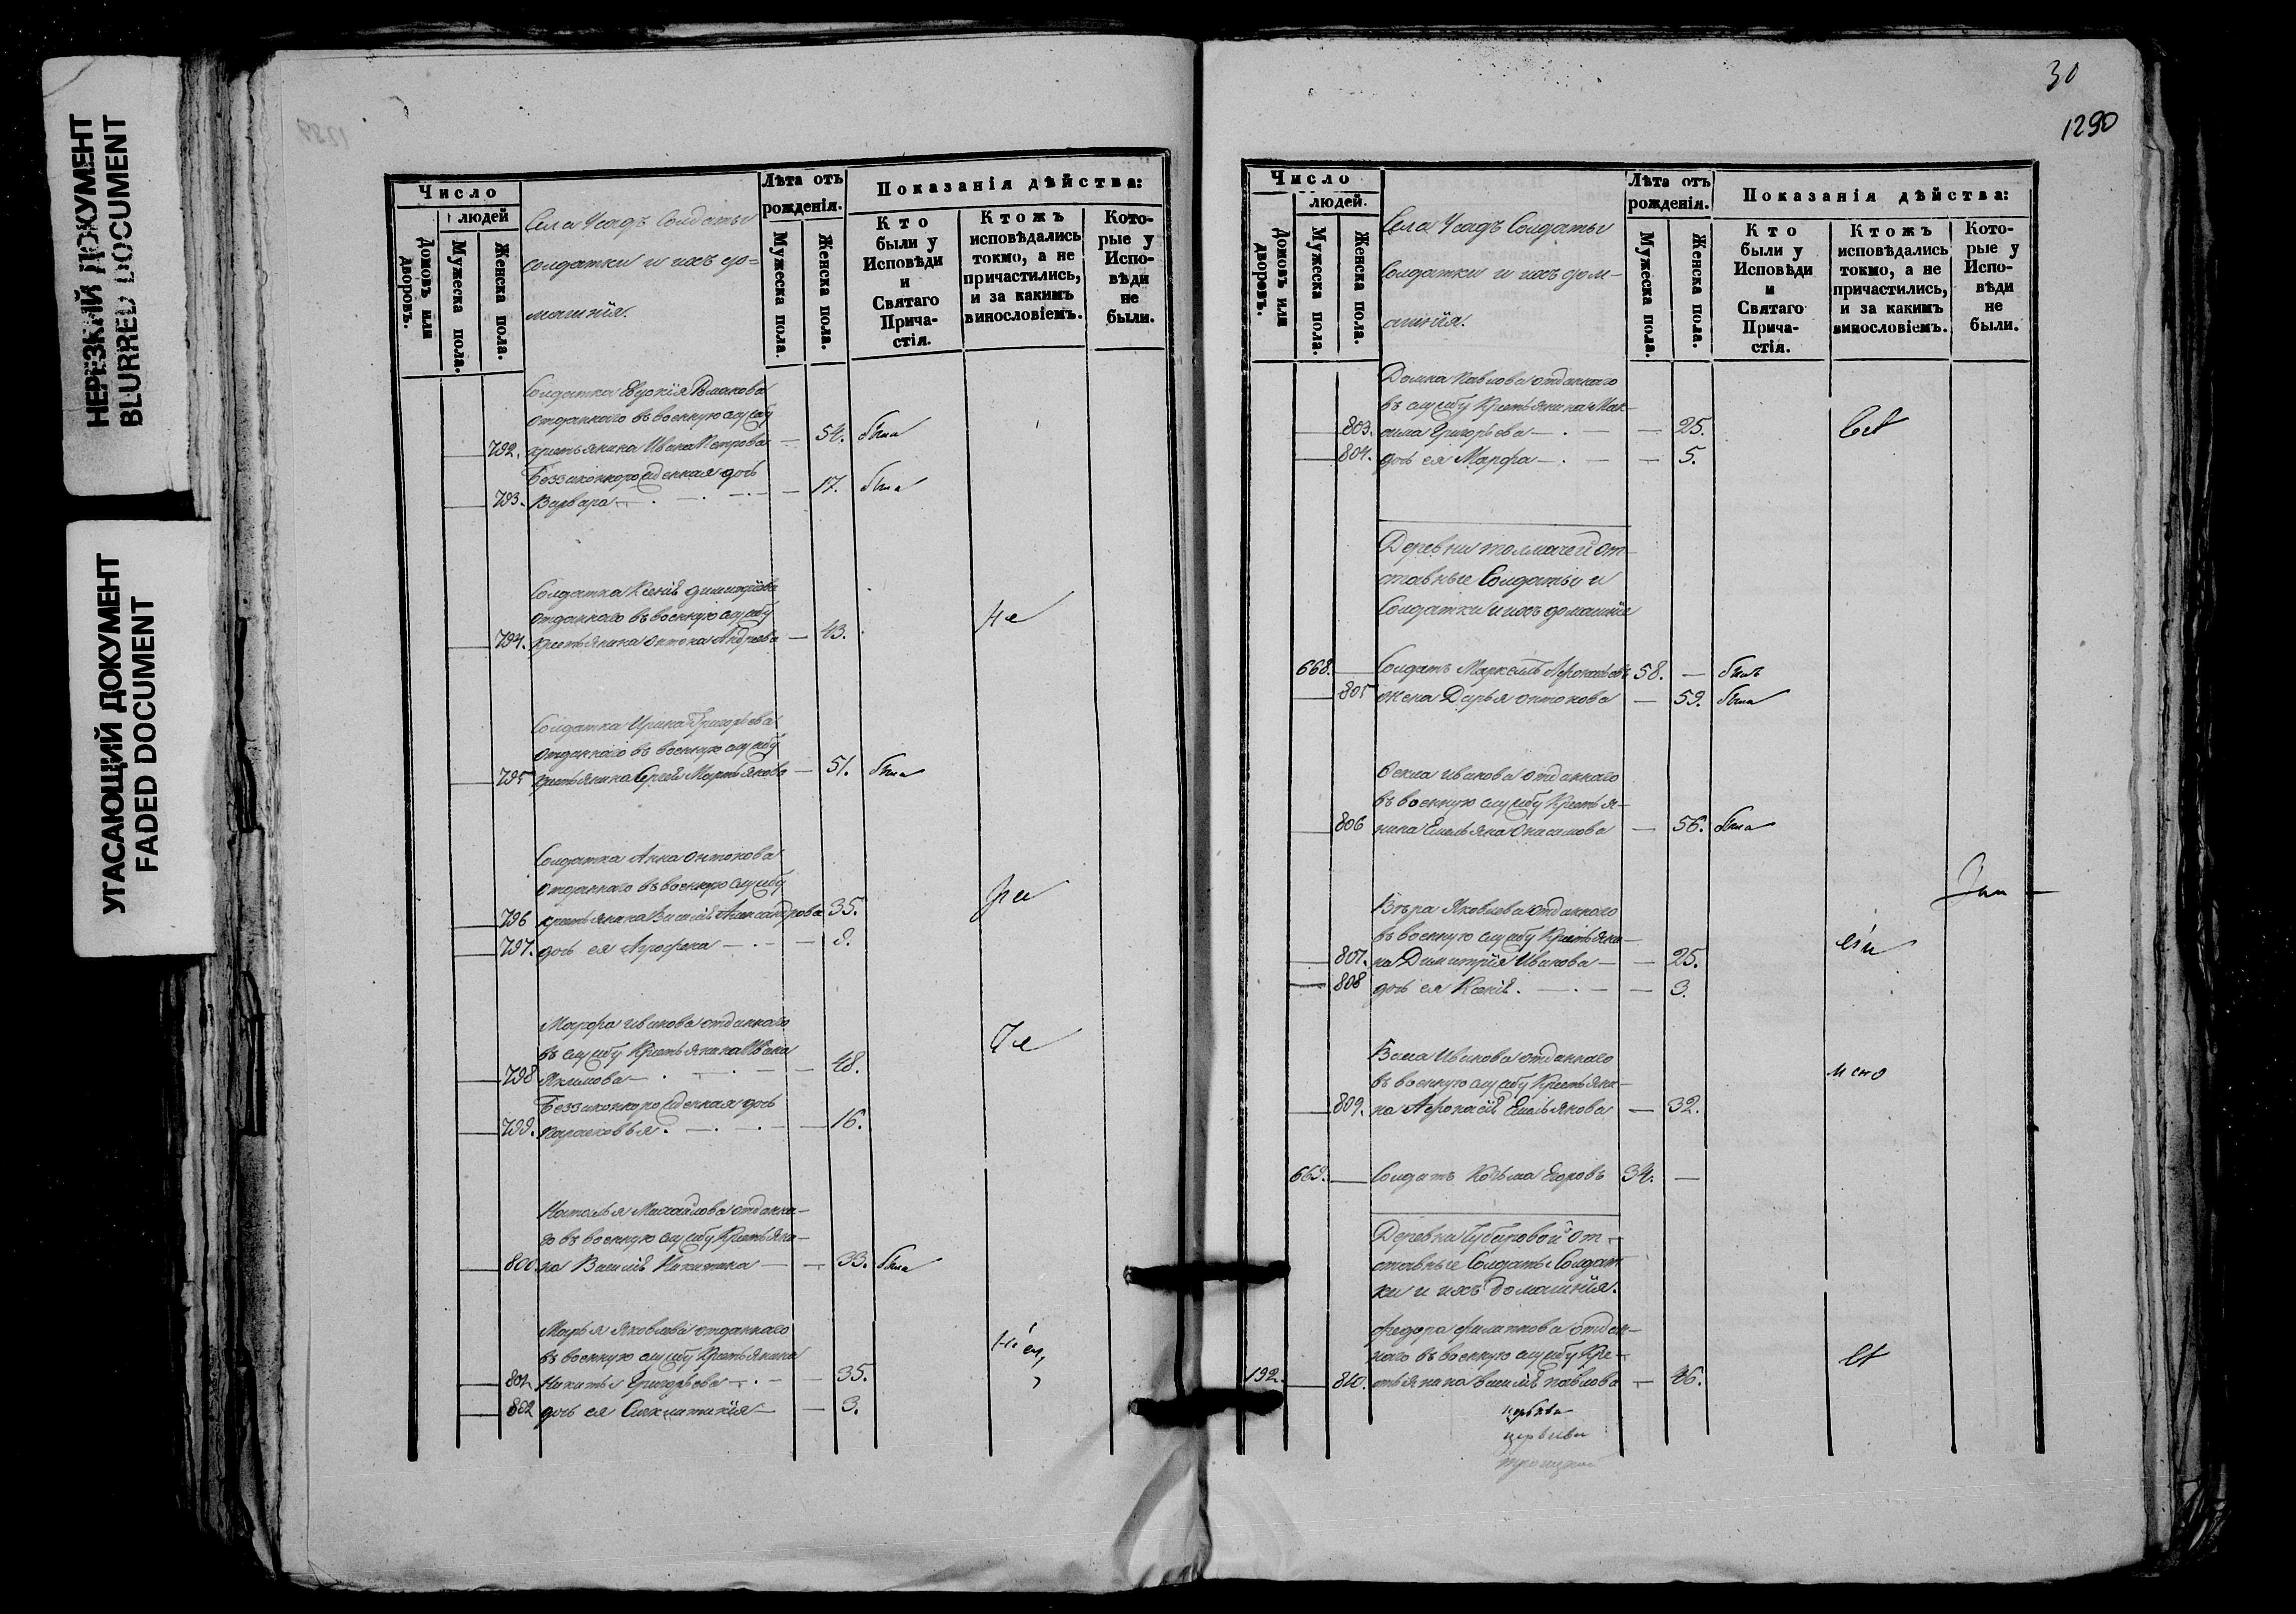 НЕРЕЗКИЙ ДОКУМЕНТ
BLURRED DOCUMENT
УГАСАЮЩИЙ ДОКУМЕНТ
FADED DOCUMENT
Число
людей
Домовъ или дворовъ.
Мужеска пола.
Женска пола.
Села Усадъ Солдаты
солдатки и ихъ до=
машнія.
Лѣта отъ рожденія.
Мужеска пола.
Женска пола.
Показанія дѣйства:
Кто были у Исповѣди и Святаго Прича-стія.
Ктожъ исповѣдались токмо, а не причастились, и за какимъ винословіемъ.
Кото-рые у Испо-вѣди не были.
Солдатка Евдокія
отданнаго въ военную службу
792. крестьянина Ивана Петрова — 54. была
Беззаконнорожденная дочь
793. Варвара — 17. была
Солдатка Ксенія Димитріева
отданнаго въ военную службу
794. крестьянина Антона Андреева — 43.
Не
Солдатка Ирина Григорьева
отданнаго въ военную службу
795 крестьянина Сергѣя Мартьянова — 51. была
Солдатка Анна Антонова
отданнаго въ военную службу
796 крестьянина Василія Александрова 35.
797. дочь ея Агрофена — 8.
Марфа Иванова отданнаго
въ службу крестьянина Ивана
798 Якимова — 48.
Беззаконнорожденная дочь
799. Парасковья. — 16.
Наталья Михайлова отданна-
го въ военную службу Крестьяни-
800. на Василія Никитина — 33. была
Марья Яковлева отданнаго
въ военную службу Крестьянина
801 Никиты Григорьева — 35.
802 дочь ея Синклитикія — 3.
30
1290
Число
людей.
Домовъ или дворовъ.
Мужеска пола.
Женска пола.
Села Усадъ Солдаты
Солдатки и ихъ дом-
ашнія.
Лѣта отъ рожденія.
Мужеска пола.
Женска пола.
Показанія дѣйства:
Кто были у Исповѣди и Святаго Прича-стія.
Ктожъ исповѣдались токмо, а не причастились, и за какимъ винословіемъ.
Кото-рые у Испо-вѣди не были.
Домна Павлова отданнаго
въ службу Крестьянина Мак-
803. сима Григорьева — 25.
804. дочь ея Марфа — 5.
Деревни Толмачей от-
ставные Солдаты и
Солдатки и ихъ домашніе
668. Солдатъ Маркеллъ Афонасьевъ 58. — былъ
805 жена Дарья Антонова — 59. была
Фекла Иванова отданнаго
въ военную службу Крестья-
806 нина Емельяна Анисимова — 56. была
Вѣра Яковлева отданнаго
въ военную службу Крестьяни-
807. на Димитрія Иванова — 25.
808 дочь ея Ксенія. — 3.
Васса Иванова отданнаго
въ военную службу Крестьяни-
809. на Афонасія Емельянова — 32.
669. Солдатъ Козьма Егоровъ 34. —
Деревни от-
ставные Солдаты Солдат
ки и ихъ домашнія.
Федора Филиппова отдан-
наго въ военную службу Кре-
192. 810. стьянина Василія Павлова — 46.
церкви